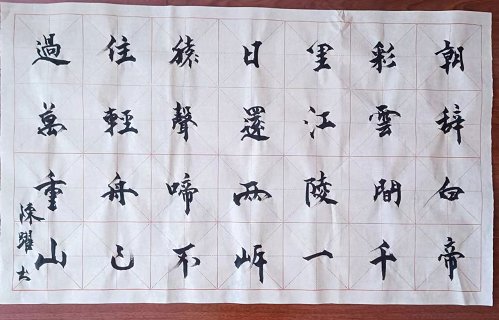 朝辞白帝
彩雲間千
里江陵一
日還兩岸
猿聲啼不
住輕舟已
過萬重山
陳躍书